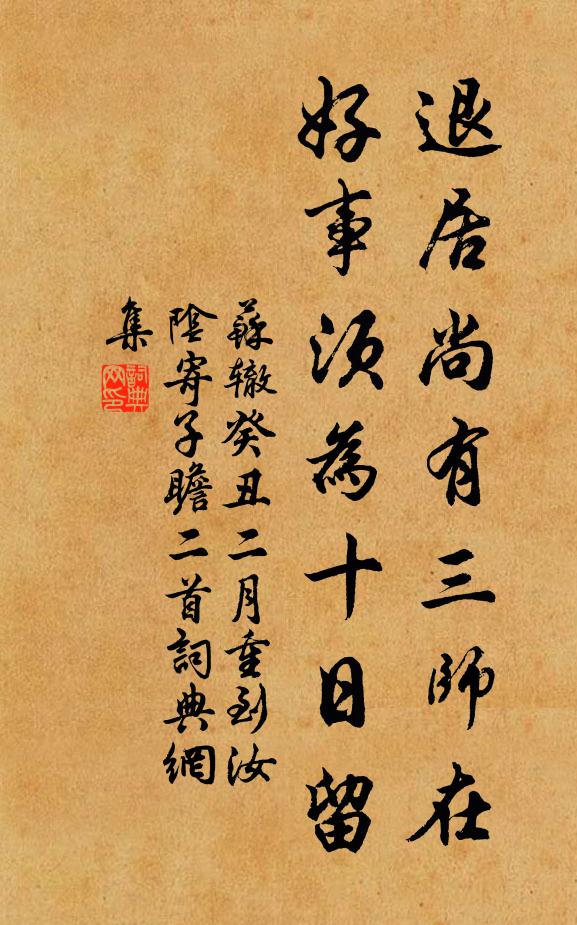 退居尚有三師在
好事須為十日留
蘇轍癸丑二月重到汝
陰寄子瞻二首詞典網
集
詞典
网印